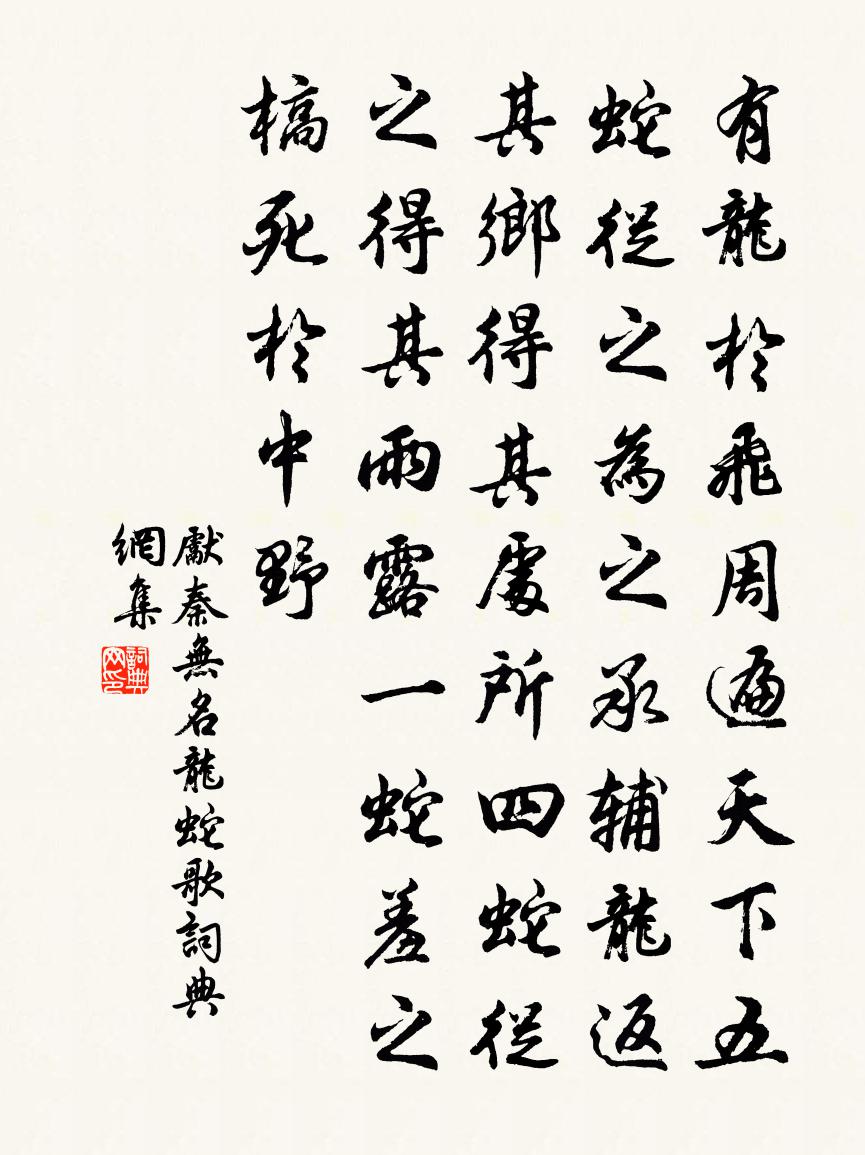 有龍於飛周遍天下五
蛇從之為之承輔龍返
其鄉得其處所四蛇從
之得其雨露一蛇羞之
槁死於中野
獻秦無名龍蛇歌詞典
網集
詞典
网印